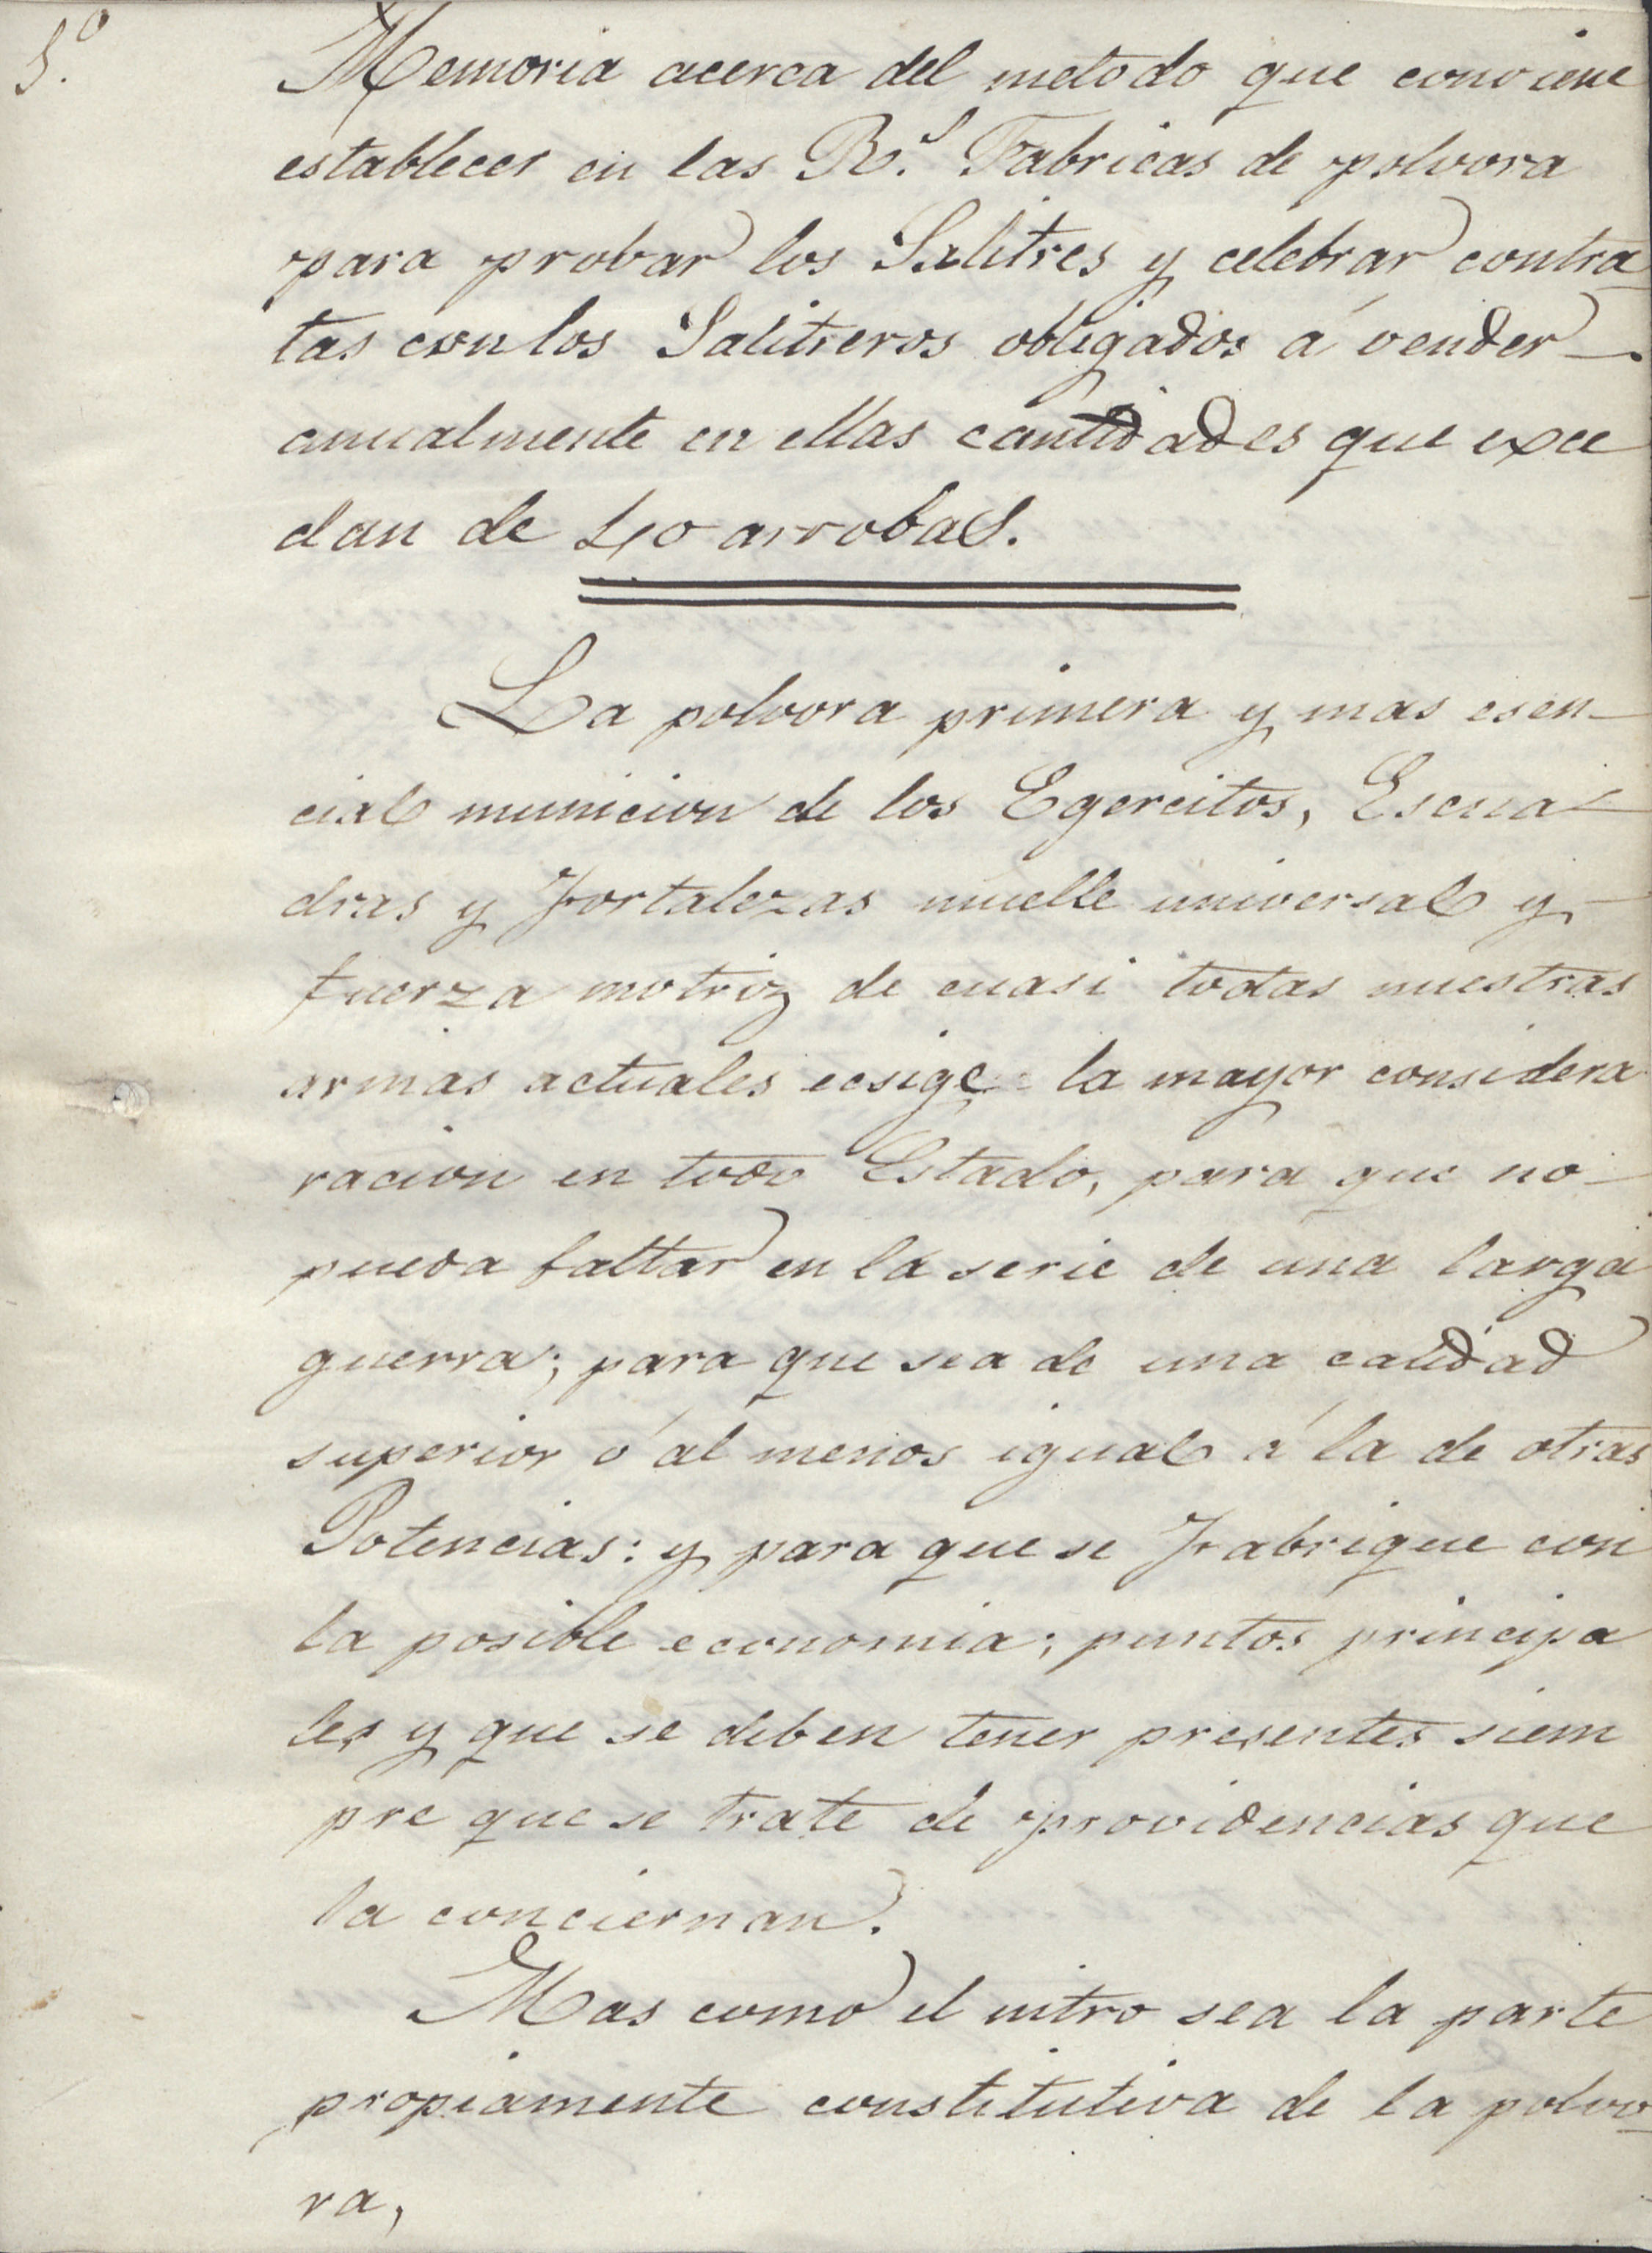 5.º
Memoria acerca del metodo que conviene
establecer en las R.s Fabricas de polvora
para probar los Salitres y celebrar contra
tas con los Salitreros obligados á vender
anualmente en ellas cantidades que exce
dan de 40 arrobas.
La polvora primera y mas esen-
cial municion de los Egercitos, Escua-
dras y Fortalezas muelle universal y
fuerza motriz de cuasi todas nuestras
armas actuales ecsige la mayor considera
racion en todo Estado, para que no
pueda faltar en la serie de una larga
guerra; para que sea de una calidad
superior ó al menos igual á la de otras
Potencias: y para que se Fabrique con
la posible economia; puntos principa
les y que se deben tener presentes siem
pre que se trate de providencias que
la conciernan.
Mas como el nitro sea la parte
propiamente constitutiva de la polvo
ra,